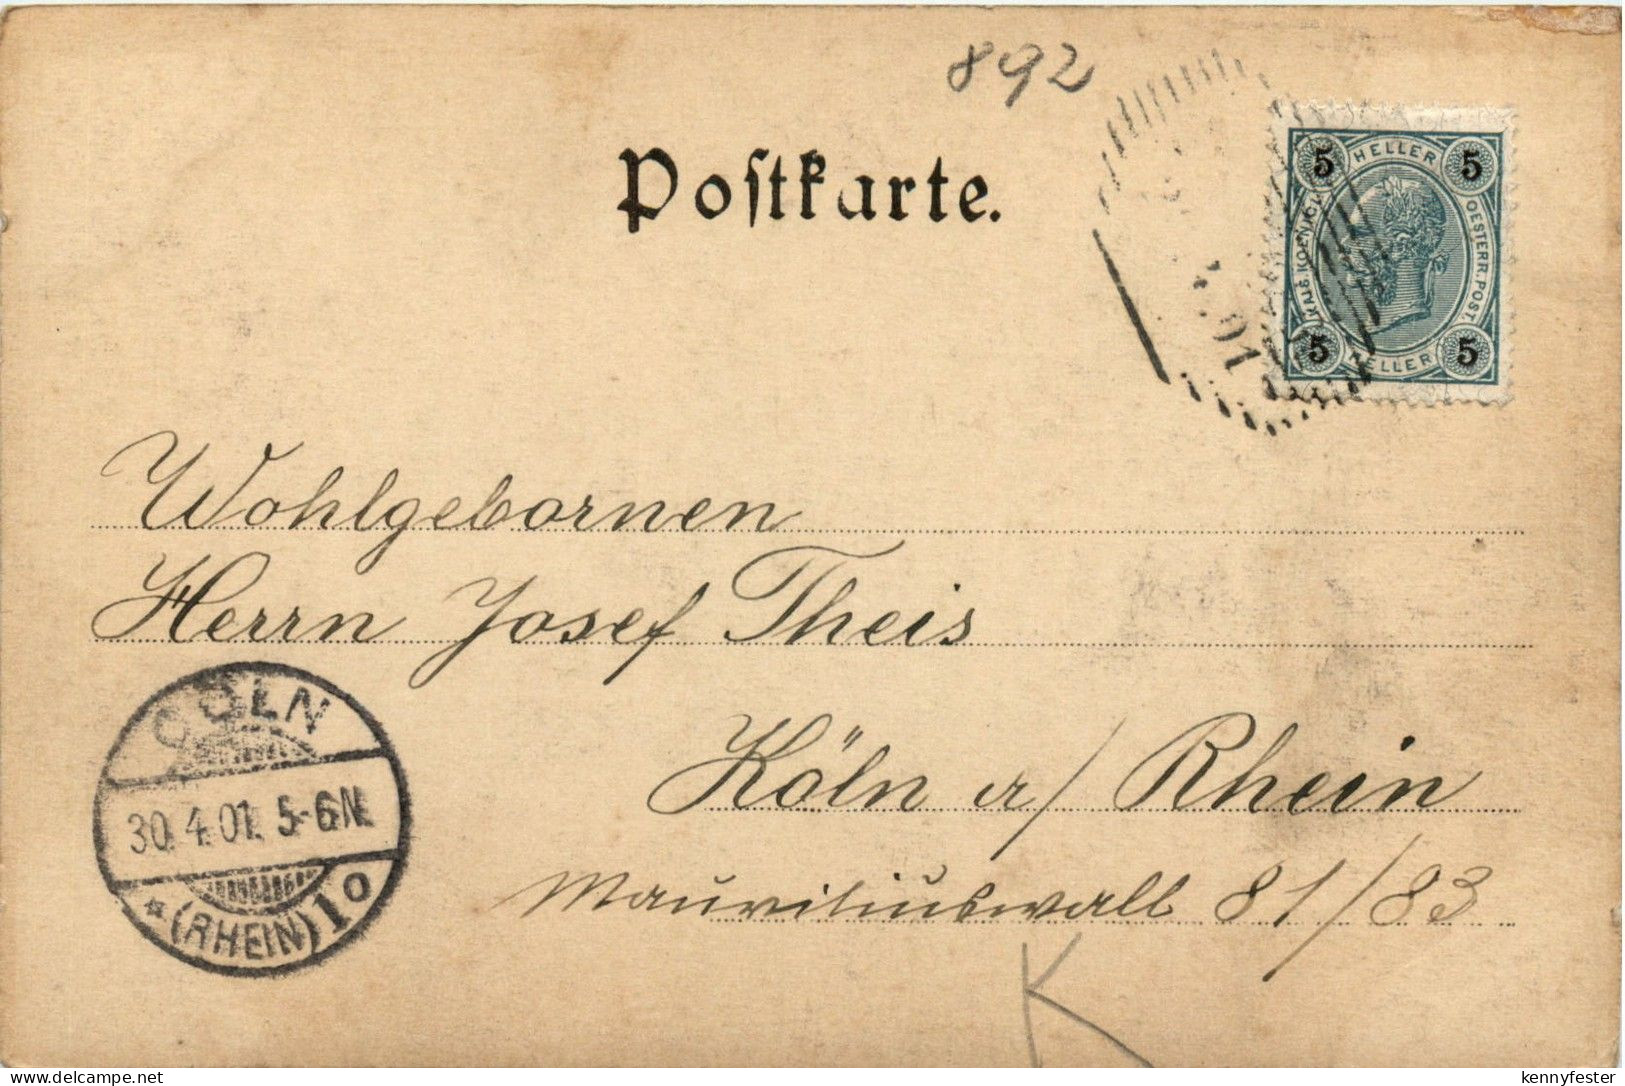 892
Postkarte.
5 HELLER 5
KAIS. KOENIGL.
OESTERR. POST.
5 HELLER 5
01
Wohlgebornen
Herrn Josef Theis
Köln a/ Rhein
Mauritiuswall 81/83
CÖLN
30.4.01. 5-6N.
* (RHEIN) 10
K
Delcampe.net
kennyfester